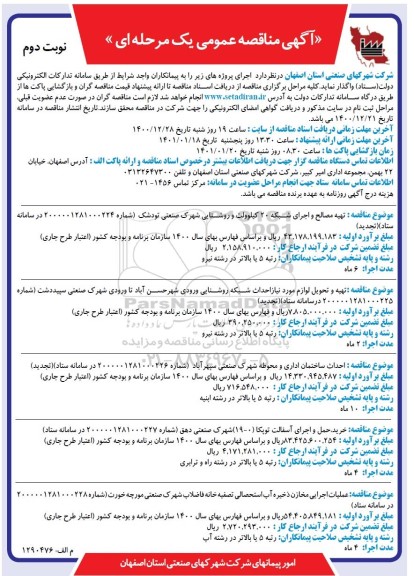 «آگهی مناقصه عمومی یک مرحله ای »
نوبت دوم
شرکت شهرکهای صنعتی استان اصفهان درنظردارد اجرای پروژه های زیر را به پیمانکاران واجد شرایط از طریق سامانه تدارکات الکترونیکی
دولت(ستاد) واگذار نماید.کلیه مراحل برگزاری مناقصه از دریافت اسناد مناقصه تا ارائه پیشنهاد قیمت مناقصه گران و بازگشایی پاکت ها از
طریق درگاه سامانه تدارکات دولت به آدرس www.setadiran.ir انجام خواهد شد لازم است مناقصه گران در صورت عدم عضویت قبلی،
مراحل ثبت نام در سایت مذکور و دریافت گواهی امضای الکترونیکی را جهت شرکت در مناقصه محقق سازند.تاریخ انتشار مناقصه در سامانه
تاریخ ۱۴۰۰/۱۲/۲۱ می باشد.
آخرین مهلت زمانی دریافت اسناد مناقصه از سایت : ساعت ۱۹ روز شنبه تاریخ ۱۴۰۰/۱۲/۲۸
آخرین مهلت زمانی ارائه پیشنهاد : ساعت ۱۳:۳۰ روز پنجشنبه تاریخ ۱۴۰۱/۰۱/۱۸
زمان بازگشایی پاکت ها : ساعت ۰۸:۳۰ روز شنبه تاریخ ۱۴۰۱/۰۱/۲۰
اطلاعات تماس دستگاه مناقصه گزار جهت دریافت اطلاعات بیشتر در خصوص اسناد مناقصه و ارائه پاکت الف : آدرس اصفهان، خیابان
۲۲ بهمن، مجموعه اداری امیر کبیر، شرکت شهرکهای صنعتی استان اصفهان و تلفن ۰۳۱۳۲۶۴۷۳۰۰
اطلاعات تماس سامانه ستاد جهت انجام مراحل عضویت در سامانه: مرکز تماس ۱۴۵۶-۰۲۱
هزینه درج آگهی روزنامه به عهده برنده مناقصه می باشد.
موضوع مناقصه : تهیه مصالح و اجرای شبکه ۲۰ کیلوولت و روشنایی شهرک صنعتی تودشک (شماره ۲۰۰۰۰۰۱۲۸۱۰۰۰۲۲۴ در سامانه
ستاد)(تجدید)
مبلغ برآورد اولیه : ۴۳.۱۷۸.۱۹۹.۱۸۳ ریال و براساس فهارس بهای سال ۱۴۰۰ سازمان برنامه و بودجه کشور (اعتبار طرح جاری)
مبلغ تضمین شرکت در فرآیند ارجاع کار : ۲.۱۵۸.۹۱۰.۰۰۰ ریال
رشته و پایه تشخیص صلاحیت پیمانکاران: رتبه ۵ یا بالاتر در رشته نیرو
مدت اجرا: ۶ ماه
موضوع مناقصه :تهیه و تحویل لوازم مورد نیازاحداث شبکه روشنایی ورودی شهرحسن آباد تا ورودی شهرک صنعتی سپیددشت (شماره
۲۰۰۰۰۰۱۲۸۱۰۰۰۲۲۵ درسامانه ستاد)(تجدید)
مبلغ برآورد اولیه : ۷.۸۰۵.۰۰۰.۰۰۰ریال و براساس فهارس بهای سال ۱۴۰۰ سازمان برنامه و بودجه کشور (اعتبار طرح جاری)
مبلغ تضمین شرکت در فرآیند ارجاع کار : ۳۹۰.۲۵۰.۰۰۰ ریال
رشته و پایه تشخیص صلاحیت پیمانکاران: رتبه ۵ یا بالاتر در رشته نیرو
مدت اجرا: ۲ ماه
موضوع مناقصه : احداث ساختمان اداری و محوطه شهرک صنعتی سپهرآباد (شماره ۲۰۰۰۰۰۱۲۸۱۰۰۰۲۲۶ در سامانه ستاد)(تجدید)
مبلغ برآورد اولیه : ۱۴.۳۳۰.۹۴۵.۴۸۷ ریال و براساس فهارس بهای سال ۱۴۰۰ سازمان برنامه و بودجه کشور (اعتبار طرح جاری)
مبلغ تضمین شرکت در فرآیند ارجاع کار : ۷۱۶.۵۴۸.۰۰۰ ریال
رشته و پایه تشخیص صلاحیت پیمانکاران : رتبه ۵ یا بالاتر در رشته ابنیه
مدت اجرا: ۱۰ ماه
موضوع مناقصه: خرید،حمل و اجرای آسفالت توپکا (۱۹-۰) شهرک صنعتی دهق (شماره ۲۰۰۰۰۰۱۲۸۱۰۰۰۲۲۷ در سامانه ستاد)
مبلغ برآورد اولیه : ۸۳.۴۲۵.۶۰۰.۲۵۴ریال و براساس فهارس بهای سال ۱۴۰۰ سازمان برنامه و بودجه کشور (اعتبار طرح جاری)
مبلغ تضمین شرکت در فرآیند ارجاع کار: ۴.۱۷۱.۲۸۱.۰۰۰ ریال
رشته و پایه تشخیص صلاحیت پیمانکاران: رتبه ۵ یا بالاتر در رشته راه و ترابری
مدت اجرا: ۴ ماه
موضوع مناقصه: عملیات اجرایی مخازن ذخیره آب استحصالی تصفیه خانه فاضلاب شهرک صنعتی مورچه خورت (شماره ۲۰۰۰۰۰۱۲۸۱۰۰۰۲۲۸
در سامانه ستاد)
مبلغ برآورد اولیه : ۵۴.۴۰۵.۸۴۹.۱۸۱ریال و براساس فهارس بهای سال ۱۴۰۰ سازمان برنامه و بودجه کشور (اعتبار طرح جاری)
مبلغ تضمین شرکت در فرآیند ارجاع کار : ۲.۷۲۰.۲۹۳.۰۰۰ ریال
رشته و پایه تشخیص صلاحیت پیمانکاران: رتبه ۵ یا بالاتر در رشته آب
مدت اجرا: ۴ ماه
م الف: ۱۲۹۰۴۷۶
امور پیمانهای شرکت شهرکهای صنعتی استان اصفهان